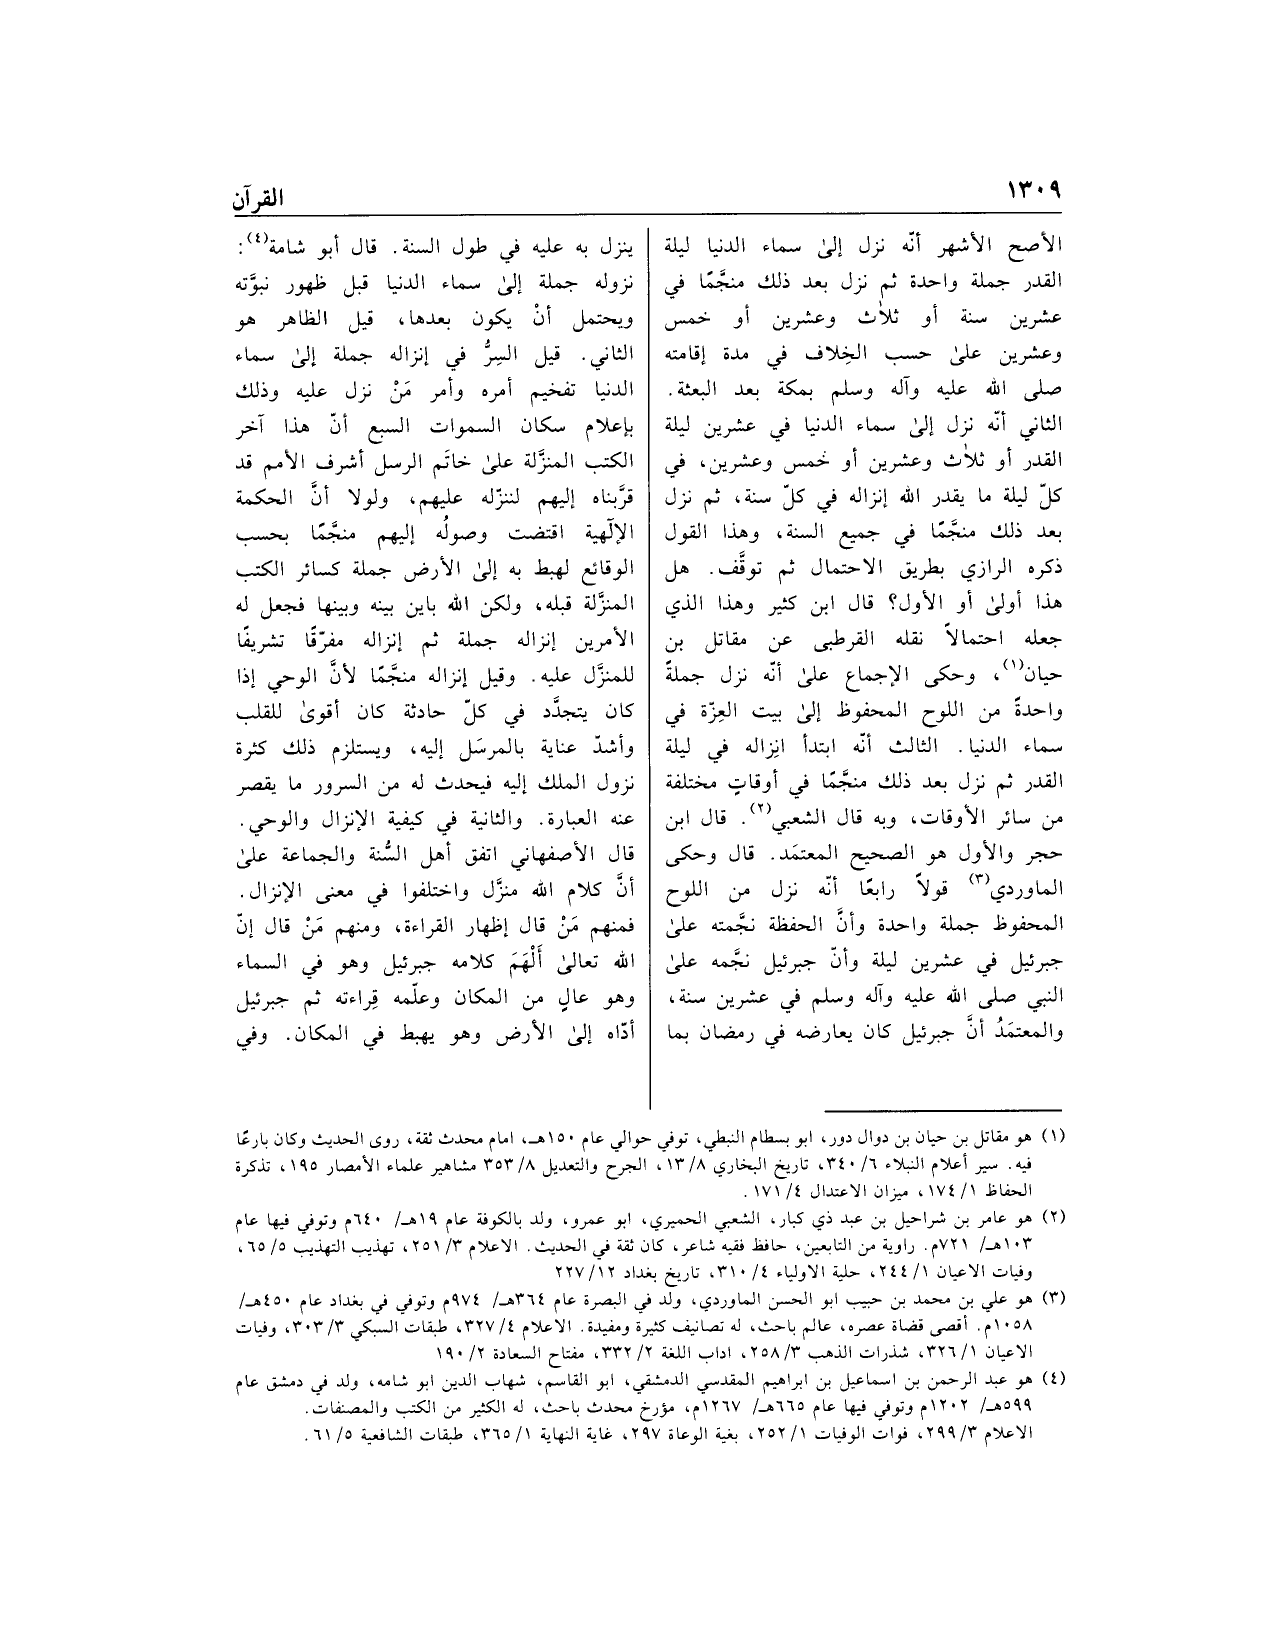 ١٣٠٩
القرآن
الأصح الأشهر أنّه نزل إلىٰ سماء الدنيا ليلة
القدر جملة واحدة ثم نزل بعد ذلك منجَّمًا في
عشرين سنة أو ثلاث وعشرين أو خمس
وعشرين علىٰ حسب الخِلاف في مدة إقامته
صلى الله عليه وآله وسلم بمكة بعد البعثة.
الثاني أنّه نزل إلىٰ سماء الدنيا في عشرين ليلة
القدر أو ثلاث وعشرين أو خمس وعشرين، في
كلّ ليلة ما يقدر الله إنزاله في كلّ سنة، ثم نزل
بعد ذلك منجَّمًا في جميع السنة، وهذا القول
ذكره الرازي بطريق الاحتمال ثم توقَّف. هل
هذا أولىٰ أو الأول؟ قال ابن كثير وهذا الذي
جعله احتمالاً نقله القرطبى عن مقاتل بن
حيان(١)، وحكى الإجماع علىٰ أنّه نزل جملةً
واحدةً من اللوح المحفوظ إلىٰ بيت العِزّة في
سماء الدنيا. الثالث أنّه ابتدأ انِزاله في ليلة
القدر ثم نزل بعد ذلك منجَّمًا في أوقاتٍ مختلفة
من سائر الأوقات، وبه قال الشعبي(٢). قال ابن
حجر والأول هو الصحيح المعتمَد. قال وحكى
الماوردي(٣) قولاً رابعًا أنّه نزل من اللوح
المحفوظ جملة واحدة وأنَّ الحفظة نجَّمته علىٰ
جبرئيل في عشرين ليلة وأنّ جبرئيل نجَّمه علىٰ
النبي صلى الله عليه وآله وسلم في عشرين سنة،
والمعتمَدُ أنَّ جبرئيل كان يعارضه في رمضان بما
ينزل به عليه في طول السنة. قال أبو شامة(٤):
نزوله جملة إلىٰ سماء الدنيا قبل ظهور نبوَّته
ويحتمل أنْ يكون بعدها، قيل الظاهر هو
الثاني. قيل السِرُّ في إنزاله جملة إلىٰ سماء
الدنيا تفخيم أمره وأمر مَنْ نزل عليه وذلك
بإعلام سكان السموات السبع أنّ هذا آخر
الكتب المنزَّلة علىٰ خاتَم الرسل أشرف الأمم قد
قرَّبناه إليهم لننزّله عليهم، ولولا أنَّ الحكمة
الإلٓهية اقتضت وصولُه إليهم منجَّمًا بحسب
الوقائع لهبط به إلىٰ الأرض جملة كسائر الكتب
المنزَّلة قبله، ولكن الله باين بينه وبينها فجعل له
الأمرين إنزاله جملة ثم إنزاله مفرّقًا تشريفًا
للمنزَّل عليه. وقيل إنزاله منجَّمًا لأنَّ الوحي إذا
كان يتجدَّد في كلّ حادثة كان أقوىٰ للقلب
وأشدّ عناية بالمرسَل إليه، ويستلزم ذلك كثرة
نزول الملك إليه فيحدث له من السرور ما يقصر
عنه العبارة. والثانية في كيفية الإنزال والوحي.
قال الأصفهاني اتفق أهل السُّنة والجماعة علىٰ
أنَّ كلام الله منزَّل واختلفوا في معنى الإنزال.
فمنهم مَنْ قال إظهار القراءة، ومنهم مَنْ قال إنّ
الله تعالىٰ أَلْهَمَ كلامه جبرئيل وهو في السماء
وهو عالٍ من المكان وعلّمه قِراءته ثم جبرئيل
أدّاه إلىٰ الأرض وهو يهبط في المكان. وفي
(١) هو مقاتل بن حيان بن دوال دور، ابو بسطام النبطي، توفي حوالي عام ١٥٠هـ، امام محدث ثقة، روى الحديث وكان بارعًا
فيه. سير أعلام النبلاء ٦/ ٣٤٠، تاريخ البخاري ٨/ ١٣، الجرح والتعديل ٨/ ٣٥٣ مشاهير علماء الأمصار ١٩٥، تذكرة
الحفاظ ١/ ١٧٤، ميزان الاعتدال ٤/ ١٧١.
(٢) هو عامر بن شراحيل بن عبد ذي كبار، الشعبي الحميري، ابو عمرو، ولد بالكوفة عام ١٩هـ/ ٦٤٠م وتوفي فيها عام
١٠٣هـ/ ٧٢١م. راوية من التابعين، حافظ فقيه شاعر، كان ثقة في الحديث. الاعلام ٣/ ٢٥١، تهذيب التهذيب ٥/ ٦٥،
وفيات الاعيان ١/ ٢٤٤، حلية الاولياء ٤/ ٣١٠، تاريخ بغداد ١٢/ ٢٢٧
(٣) هو علي بن محمد بن حبيب ابو الحسن الماوردي، ولد في البصرة عام ٣٦٤هـ/ ٩٧٤م وتوفي في بغداد عام ٤٥٠هـ/
١٠٥٨م. أقصى قضاة عصره، عالم باحث، له تصانيف كثيرة ومفيدة. الاعلام ٤/ ٣٢٧، طبقات السبكي ٣/ ٣٠٣، وفيات
الاعيان ١/ ٣٢٦، شذرات الذهب ٣/ ٢٥٨، اداب اللغة ٢/ ٣٣٢، مفتاح السعادة ٢/ ١٩٠
(٤) هو عبد الرحمن بن اسماعيل بن ابراهيم المقدسي الدمشقي، ابو القاسم، شهاب الدين ابو شامه، ولد في دمشق عام
٥٩٩هـ/ ١٢٠٢م وتوفي فيها عام ٦٦٥هـ/ ١٢٦٧م، مؤرخ محدث باحث، له الكثير من الكتب والمصنفات.
الاعلام ٣/ ٢٩٩، فوات الوفيات ١/ ٢٥٢، بغية الوعاة ٢٩٧، غاية النهاية ١/ ٣٦٥، طبقات الشافعية ٥/ ٦١.